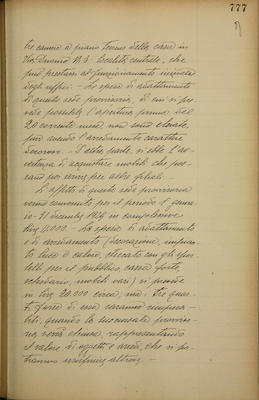 777
tre camere a piano terreno della casa in
Via Durini N. 3 - località centrale, che
può prestarsi al funzionamento immediato
degli uffici. - Le spese di adattamento
di questa sede provvisoria, di cui si pre-
vede possibile l'apertura prima del
20 corrente mese, non sono elevate,
pur avendo l'arredamento carattere
decoroso. D'altra parte, si ebbe l'av-
vertenza di acquistare mobili che pos-
sano poi servire per altre filiali. -
L'affitto di questa sede provvisoria
venne convenuto per il periodo 1° genna-
io - 31 dicembre 1919 in complessive
lire 11.000. - La spesa di adattamento
e di arredamento (decorazione, impian-
to luce e calore, steccato con gli spor-
telli per il pubblico, cassa forte,
schedario, mobili vari) si prevede
in lire 20.000 circa, ma i tre quar-
ti di essa saranno recupera-
bili, quando la succursale provviso-
ria verrà chiusa, rappresentando
il valore di oggetti e arredi, che si po-
tranno utilizzare altrove. -